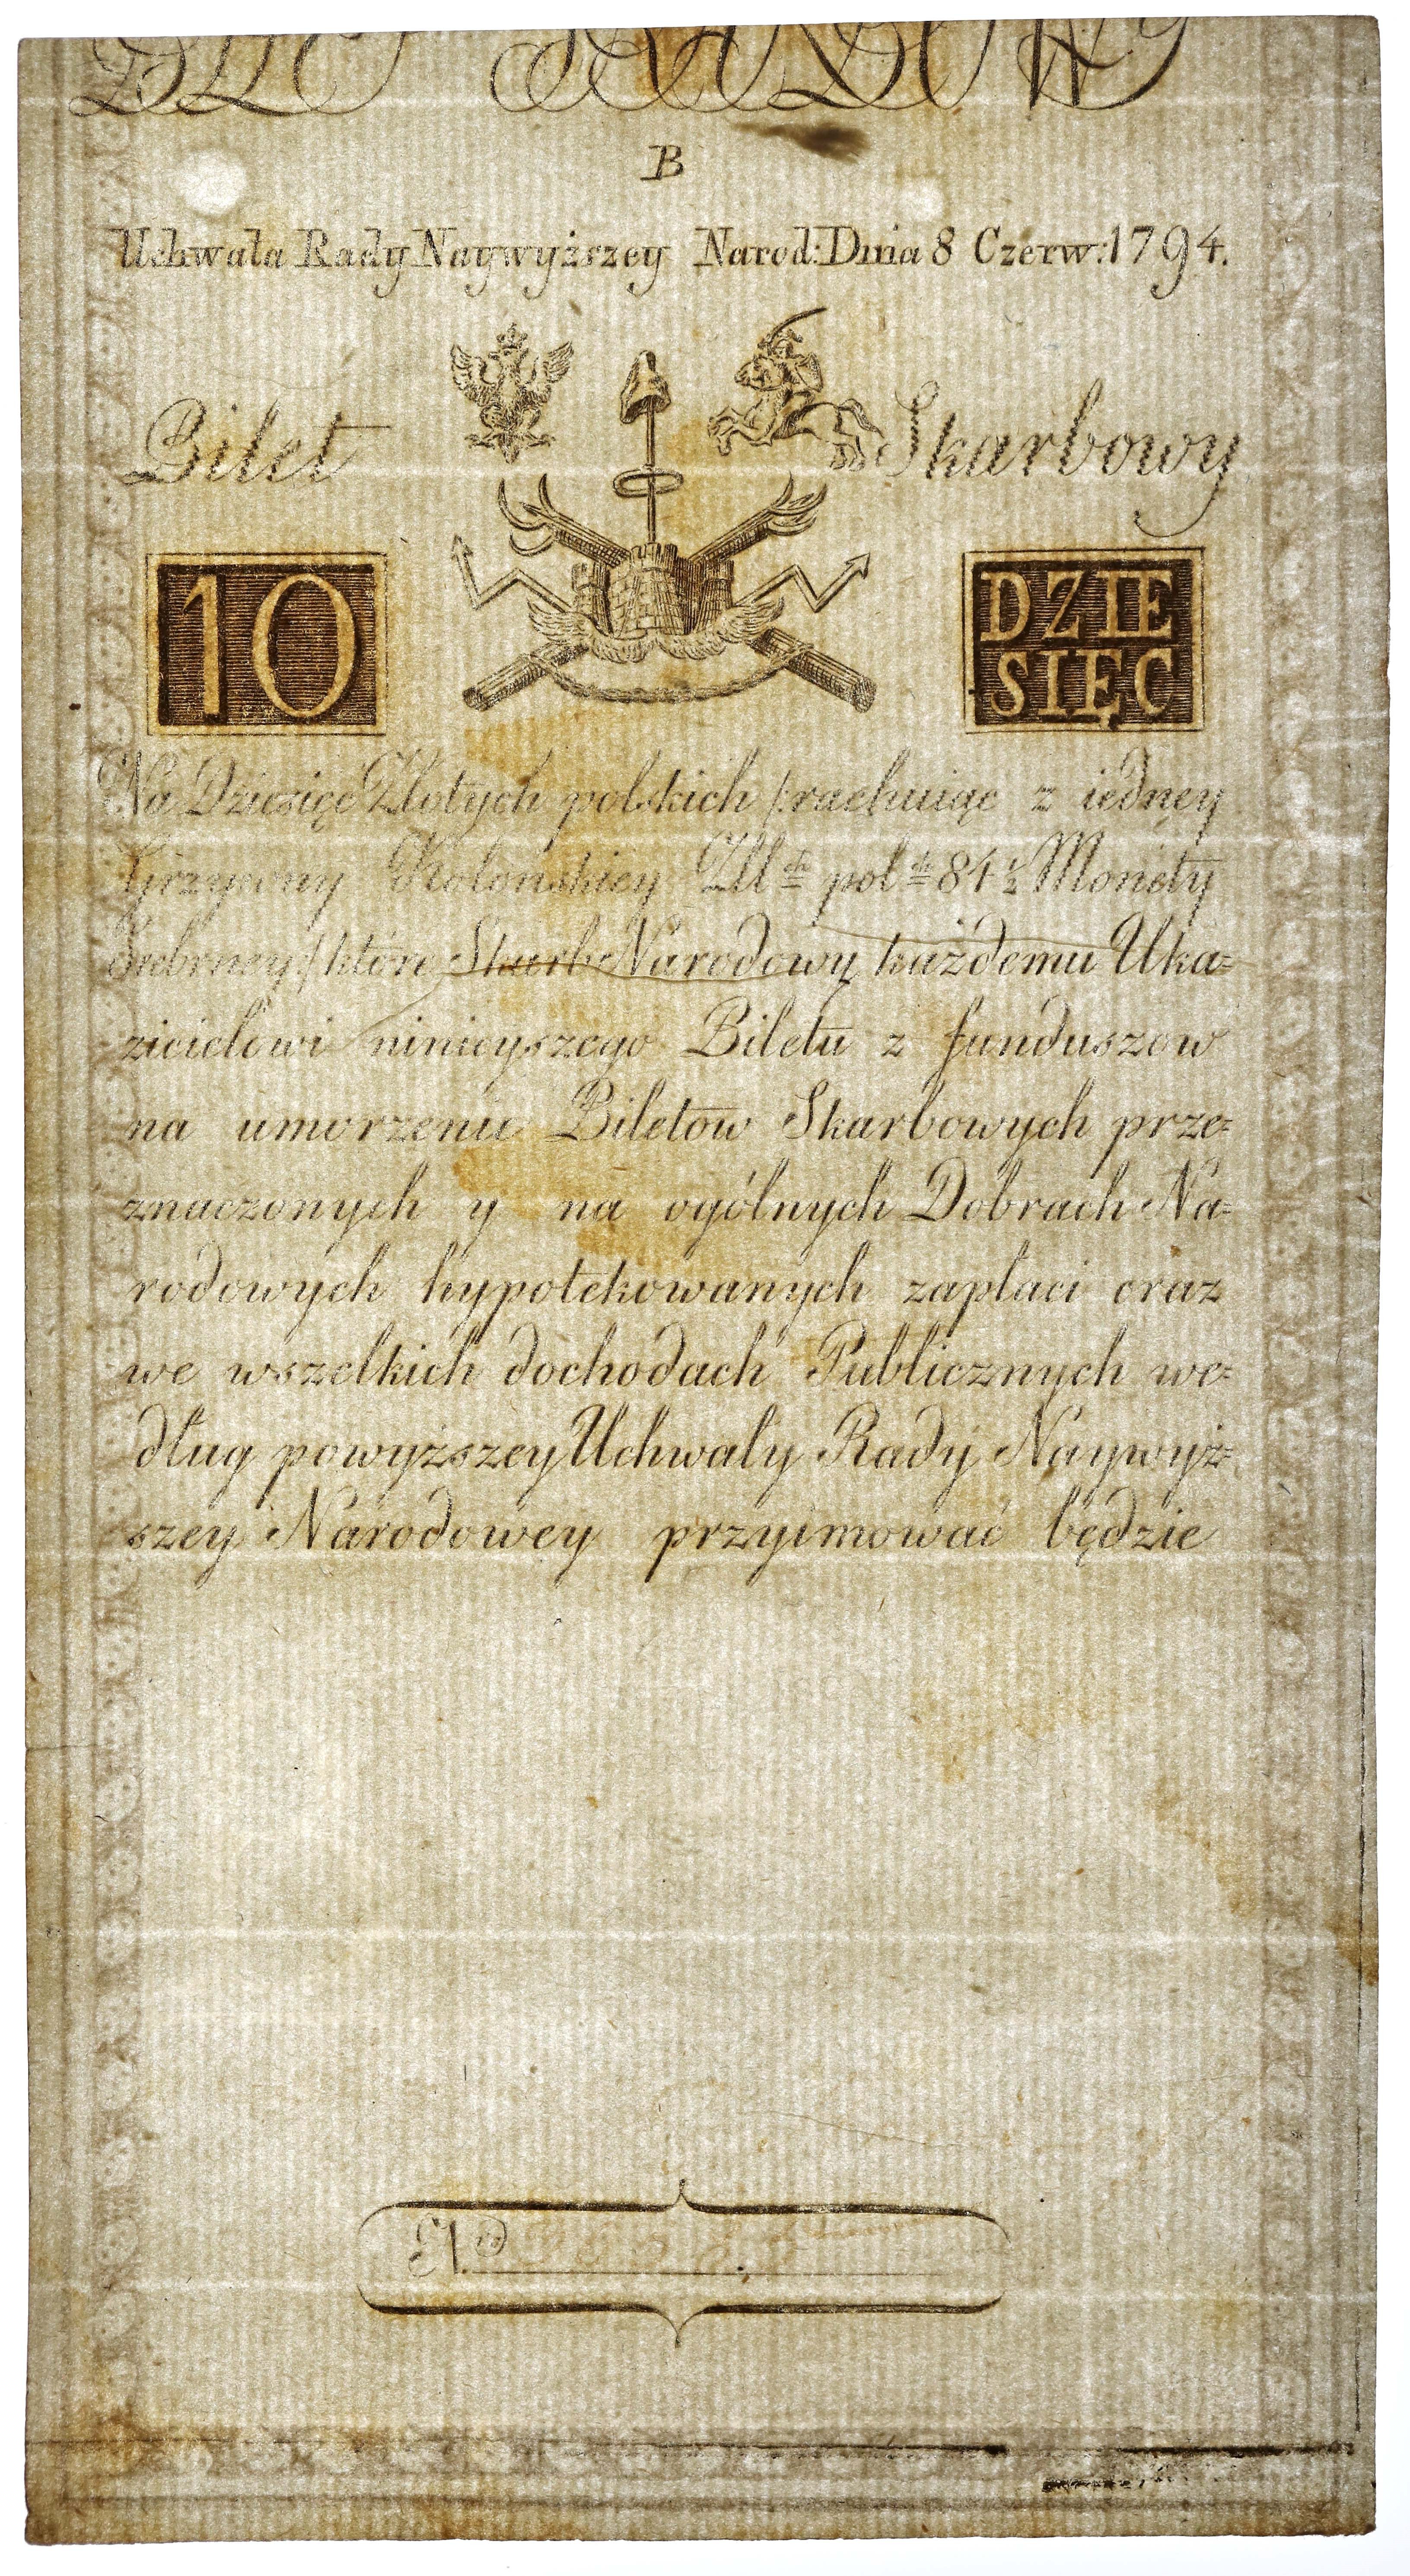 B
Uchwała Rady Naywyższey Narod: Dnia 8 Czerw: 1794.
Bilet Skarbowy
10
DZIE
SIĘC
Na Dziesięć Złotych polskich /: rachuiąc z iedney
Grzywny Kolońskiey Zll ch pol ch 84 ½ Monety
Srebrney :/ które Skarb Narodowy każdemu Uka=
zicielowi ninieyszego Biletu z funduszow
na umorzenie Biletow Skarbowych prze=
znaczonych y na ogólnych Dobrach Na=
rodowych hypotekowanych zapłaci oraz
we wszelkich dochodach Publicznych we=
dług powyższey Uchwały Rady Naywyż=
szey Narodowey przyimować będzie
N. ro